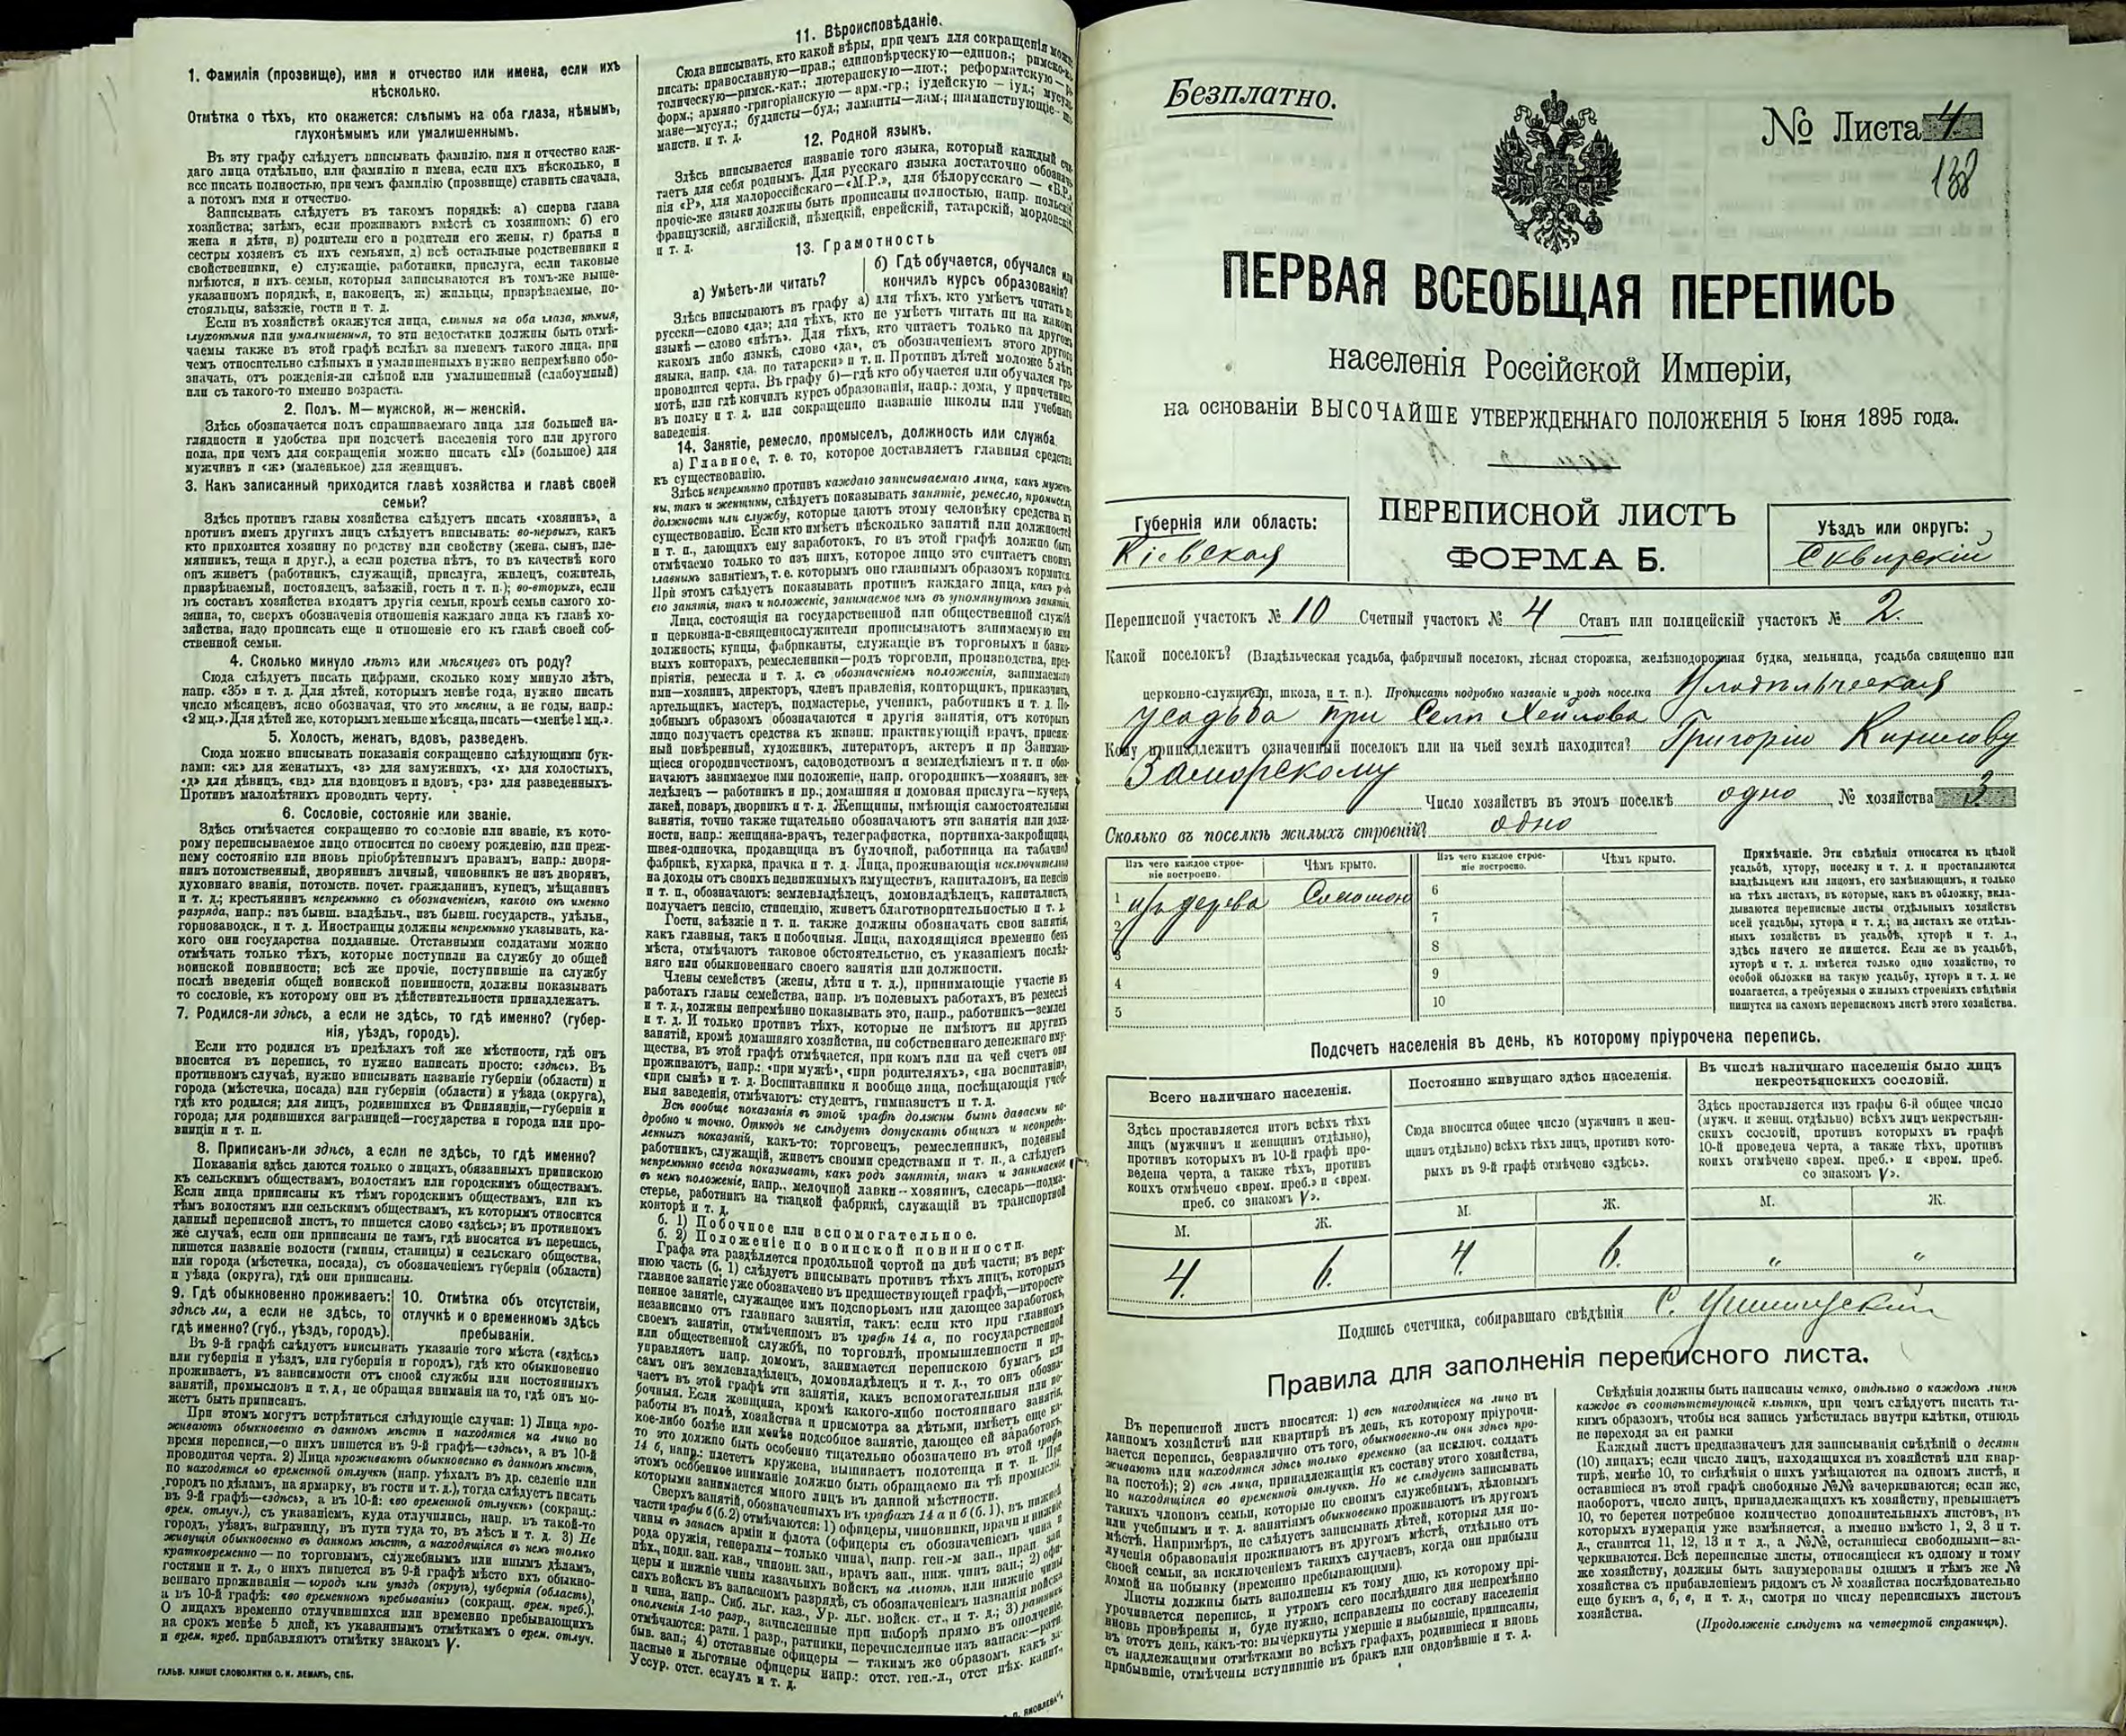 1. Фамилія (прозвище), имя и отчество или имена, если ихъ
нѣсколько.
Отмѣтка о тѣхъ, кто окажется: слѣпымъ на оба глаза, нѣмымъ,
глухонѣмымъ или умалишеннымъ.
Въ эту графу слѣдуетъ вписывать фамилію, имя и отчество каж-
даго лица отдѣльно, или фамилію и имена, если ихъ нѣсколько, и
все писать полностью, при чемъ фамилію (прозвище) ставить сначала,
а потомъ имя и отчество.
Записывать слѣдуетъ въ такомъ порядкѣ: а) сперва глава
хозяйства; затѣмъ, если проживаютъ вмѣстѣ съ хозяиномъ: б) его
жена и дѣти, в) родители его и родители его жены, г) братья и
сестры хозяевъ съ ихъ семьями, д) всѣ остальные родственники и
свойственники, е) служащіе, работники, прислуга, если таковые
имѣются, и ихъ семьи, которыя записываются въ томъ-же выше-
указанномъ порядкѣ, и, наконецъ, ж) жильцы, призрѣваемые, по-
стояльцы, заѣзжіе, гости и т. д.
Если въ хозяйствѣ окажутся лица, слѣпыя на оба глаза, нѣмыя,
глухонѣмыя или умалишенныя, то эти недостатки должны быть отмѣ-
чаемы также въ этой графѣ вслѣдъ за именемъ такого лица, при
чемъ относительно слѣпыхъ и умалишенныхъ нужно непремѣнно обо-
значать, отъ рожденія-ли слѣпой или умалишенный (слабоумный)
или съ такого-то именно возраста.
2. Полъ. М—мужской, ж—женскій.
Здѣсь обозначается полъ спрашиваемаго лица для большей на-
глядности и удобства при подсчетѣ населенія того или другого
пола, при чемъ для сокращенія можно писать «М» (большое) для
мужчинъ и «ж» (маленькое) для женщинъ.
3. Какъ записанный приходится главѣ хозяйства и главѣ своей
семьи?
Здѣсь противъ главы хозяйства слѣдуетъ писать «хозяинъ», а
противъ именъ другихъ лицъ слѣдуетъ вписывать: во-первыхъ, какъ
кто приходится хозяину по родству или свойству (жена, сынъ, пле-
мянникъ, теща и друг.), а если родства нѣтъ, то въ качествѣ кого
онъ живетъ (работникъ, служащій, прислуга, жилецъ, сожитель,
призрѣваемый, постоялецъ, заѣзжій, гость и т. п.); во-вторыхъ, если
въ составъ хозяйства входятъ другія семьи, кромѣ семьи самого хо-
зяина, то, сверхъ обозначенія отношенія каждаго лица къ главѣ хо-
зяйства, надо прописать еще и отношеніе его къ главѣ своей соб-
ственной семьи.
4. Сколько минуло лѣтъ или мѣсяцевъ отъ роду?
Сюда слѣдуетъ писать цифрами, сколько кому минуло лѣтъ,
напр. «35» и т. д. Для дѣтей, которымъ менѣе года, нужно писать
число мѣсяцевъ, ясно обозначая, что это мѣсяцы, а не годы, напр.:
«2 мц.». Для дѣтей же, которымъ меньше мѣсяца, писать—«менѣе 1 мц.».
5. Холостъ, женатъ, вдовъ, разведенъ.
Сюда можно вписывать показанія сокращенно слѣдующими бук-
вами: «ж» для женатыхъ, «з» для замужнихъ, «х» для холостыхъ,
«д» для дѣвицъ, «вд» для вдовцовъ и вдовъ, «рз» для разведенныхъ.
Противъ малолѣтнихъ проводить черту.
6. Сословіе, состояніе или званіе.
Здѣсь отмѣчается сокращенно то сословіе или званіе, къ кото-
рому переписываемое лицо относится по своему рожденію, или преж-
нему состоянію или вновь пріобрѣтеннымъ правамъ, напр.: дворя-
нинъ потомственный, дворянинъ личный, чиновникъ не изъ дворянъ,
духовнаго званія, потомств. почет. гражданинъ, купецъ, мѣщанинъ
и т. д.; крестьянинъ непремѣнно съ обозначеніемъ, какого онъ именно
разряда, напр.: изъ бывш. владѣльч., изъ бывш. государств., удѣльн.,
горнозаводск., и т. д. Иностранцы должны непремѣнно указывать, ка-
кого они государства подданные. Отставными солдатами можно
отмѣчать только тѣхъ, которые поступили на службу до общей
воинской повинности; всѣ же прочіе, поступившіе на службу
послѣ введенія общей воинской повинности, должны показывать
то сословіе, къ которому они въ дѣйствительности принадлежатъ.
7. Родился-ли здѣсь, а если не здѣсь, то гдѣ именно? (губер-
нія, уѣздъ, городъ).
Если кто родился въ предѣлахъ той же мѣстности, гдѣ онъ
вносится въ перепись, то нужно написать просто: «здѣсь». Въ
противномъ случаѣ, нужно вписывать названіе губерніи (области) и
города (мѣстечка, посада) или губерніи (области) и уѣзда (округа),
гдѣ кто родился; для лицъ, родившихся въ Финляндіи,—губерніи и
города; для родившихся заграницей—государства и города или про-
винціи и т. п.
8. Приписанъ-ли здѣсь, а если не здѣсь, то гдѣ именно?
Показанія здѣсь даются только о лицахъ, обязанныхъ припискою
къ сельскимъ обществамъ, волостямъ или городскимъ обществамъ.
Если лица приписаны къ тѣмъ городскимъ обществамъ, или къ
тѣмъ волостямъ или сельскимъ обществамъ, къ которымъ относится
данный переписной листъ, то пишется слово «здѣсь»; въ противномъ
же случаѣ, если они приписаны не тамъ, гдѣ вносятся въ перепись,
пишется названіе волости (гмины, станицы) и сельскаго общества,
или города (мѣстечка, посада), съ обозначеніемъ губерніи (области)
и уѣзда (округа), гдѣ они приписаны.
9. Гдѣ обыкновенно проживаетъ:
здѣсь ли, а если не здѣсь, то
гдѣ именно? (губ., уѣздъ, городъ).
10. Отмѣтка объ отсутствіи,
отлучкѣ и о временномъ здѣсь
пребываніи.
Въ 9-й графѣ слѣдуетъ вписывать указаніе того мѣста («здѣсь»
или губернія и уѣздъ, или губернія и городъ), гдѣ кто обыкновенно
проживаетъ, въ зависимости отъ своей службы или постоянныхъ
занятій, промысловъ и т. д., не обращая вниманія на то, гдѣ онъ мо-
жетъ быть приписанъ.
При этомъ могутъ встрѣтиться слѣдующіе случаи: 1) Лица про-
живаютъ обыкновенно въ данномъ мѣстѣ и находятся на лицо во
время переписи,—о нихъ пишется въ 9-й графѣ—«здѣсь», а въ 10-й
проводится черта. 2) Лица проживаютъ обыкновенно въ данномъ мѣстѣ,
но находятся во временной отлучкѣ (напр. уѣхалъ въ др. селеніе или
городъ по дѣламъ, на ярмарку, въ гости и т. д.), тогда слѣдуетъ писать
въ 9-й графѣ—«здѣсь», а въ 10-й: «во временной отлучкѣ» (сокращ.:
врем. отлуч.), съ указаніемъ, куда отлучились, напр. въ такой-то
городъ, уѣздъ, заграницу, въ пути туда то, въ лѣсъ и т. д. 3) Не
живущія обыкновенно въ данномъ мѣстѣ, а находящіяся въ немъ только
кратковременно—по торговымъ, служебнымъ или инымъ дѣламъ,
гостями и т. д., о нихъ пишется въ 9-й графѣ мѣсто ихъ обыкно-
веннаго проживанія—городъ или уѣздъ (округъ), губернія (область),
а въ 10-й графѣ: «во временномъ пребываніи» (сокращ. врем. преб.).
О лицахъ временно отлучившихся или временно пребывающихъ
на срокъ менѣе 5 дней, къ указаннымъ отмѣткамъ о врем. отлуч.
и врем. преб. прибавляютъ отмѣтку знакомъ V.
ГАЛЬВ. КЛИШЕ СЛОВОЛИТНИ О. И. ЛЕМАНЪ, СПБ.
11. Вѣроисповѣданіе.
Сюда вписывать, кто какой вѣры, при чемъ для сокращенія можно
писать: православную—прав.; единовѣрческую—единов.; римско-ка-
толическую—римск.-кат.; лютеранскую—лют.; реформатскую—
форм.; армяно-григоріанскую—арм.-гр.; іудейскую—іуд.; мусуль-
мане—мусул.; буддисты—буд.; ламаиты—лам.; шаманствующіе—
манств. и т. д.
12. Родной языкъ.
Здѣсь вписывается названіе того языка, который каждый счи-
таетъ для себя роднымъ. Для русскаго языка достаточно обозначе-
нія «Р», для малороссійскаго—«М.Р.», для бѣлорусскаго—«Б.Р.»
прочіе-же языки должны быть прописаны полностью, напр. польскій,
французскій, англійскій, нѣмецкій, еврейскій, татарскій, мордовскій
и т. д.
13. Грамотность
а) Умѣетъ-ли читать?
б) Гдѣ обучается, обучался или
кончилъ курсъ образованія?
Здѣсь вписываютъ въ графу а) для тѣхъ, кто умѣетъ читать по
русски—слово «да»; для тѣхъ, кто не умѣетъ читать ни на какомъ
языкѣ—слово «нѣтъ». Для тѣхъ, кто читаетъ только на другомъ
какомъ либо языкѣ, слово «да», съ обозначеніемъ этого другого
языка, напр. «да, по татарски» и т. п. Противъ дѣтей моложе 5 лѣтъ
проводится черта. Въ графу б)—гдѣ кто обучается или обучался гра-
мотѣ, или гдѣ кончилъ курсъ образованія, напр.: дома, у причетника,
въ полку и т. д. или сокращенно названіе школы или учебнаго
заведенія.
14. Занятіе, ремесло, промыселъ, должность или служба
а) Главное, т. е. то, которое доставляетъ главныя средства
къ существованію.
Здѣсь непремѣнно противъ каждаго записываемаго лица, какъ мужчи-
ны, такъ и женщины, слѣдуетъ показывать занятіе, ремесло, промыселъ,
должность или службу, которые даютъ этому человѣку средства къ
существованію. Если кто имѣетъ нѣсколько занятій или должностей
и т. п., дающихъ ему заработокъ, то въ этой графѣ должно быть
отмѣчаемо только то изъ нихъ, которое лицо это считаетъ своимъ
главнымъ занятіемъ, т. е. которымъ оно главнымъ образомъ кормится.
При этомъ слѣдуетъ показывать противъ каждаго лица, какъ родъ
его занятія, такъ и положеніе, занимаемое имъ въ упомянутомъ занятіи.
Лица, состоящія на государственной или общественной службѣ
и церковно-и-священнослужители прописываютъ занимаемую ими
должность; купцы, фабриканты, служащіе въ торговыхъ и банко-
выхъ конторахъ, ремесленники—родъ торговли, производства, пред-
пріятія, ремесла и т. д. съ обозначеніемъ положенія, занимаемаго
ими—хозяинъ, директоръ, членъ правленія, конторщикъ, приказчикъ,
артельщикъ, мастеръ, подмастерье, ученикъ, работникъ и т. д. По-
добнымъ образомъ обозначаются и другія занятія, отъ которыхъ
лицо получаетъ средства къ жизни: практикующій врачъ, присяж-
ный повѣренный, художникъ, литераторъ, актеръ и пр Занимаю-
щіеся огородничествомъ, садоводствомъ и земледѣліемъ и т. п обоз-
начаютъ занимаемое ими положеніе, напр. огородникъ—хозяинъ, зем-
ледѣлецъ—работникъ и пр.; домашняя и домовая прислуга—кучеръ,
лакей, поваръ, дворникъ и т. д. Женщины, имѣющія самостоятельныя
занятія, точно также тщательно обозначаютъ эти занятія или долж-
ности, напр.: женщина-врачъ, телеграфистка, портниха-закройщица,
швея-одиночка, продавщица въ булочной, работница на табачной
фабрикѣ, кухарка, прачка и т. д. Лица, проживающія исключительно
на доходы отъ своихъ недвижимыхъ имуществъ, капиталовъ, на пенсію
и т. п., обозначаютъ: землевладѣлецъ, домовладѣлецъ, капиталистъ,
получаетъ пенсію, стипендію, живетъ благотворительностью и т. д.
Гости, заѣзжіе и т. п. также должны обозначать свои занятія,
какъ главныя, такъ и побочныя. Лица, находящіяся временно безъ
мѣста, отмѣчаютъ таковое обстоятельство, съ указаніемъ послѣд-
няго или обыкновеннаго своего занятія или должности.
Члены семействъ (жены, дѣти и т. д.), принимающіе участіе въ
работахъ главы семейства, напр. въ полевыхъ работахъ, въ ремеслѣ
и т. д., должны непремѣнно показывать это, напр., работникъ—землед.
и т. д. И только противъ тѣхъ, которые не имѣютъ ни другихъ
занятій, кромѣ домашняго хозяйства, ни собственнаго денежнаго иму-
щества, въ этой графѣ отмѣчается, при комъ или на чей счетъ они
проживаютъ, напр.: «при мужѣ», «при родителяхъ», «на воспитаніи»,
«при сынѣ» и т. д. Воспитанники и вообще лица, посѣщающія учеб-
ныя заведенія, отмѣчаютъ: студентъ, гимназистъ и т. д.
Всѣ вообще показанія въ этой графѣ должны быть даваемы по-
дробно и точно. Отнюдь не слѣдуетъ допускать общихъ и неопредѣ-
ленныхъ показаній, какъ-то: торговецъ, ремесленникъ, поденный
работникъ, служащій, живетъ своими средствами и т. п., а слѣдуетъ
непремѣнно всегда показывать, какъ родъ занятія, такъ и занимаемое
въ немъ положеніе, напр., мелочной лавки—хозяинъ, слесарь—подма-
стерье, работникъ на ткацкой фабрикѣ, служащій въ транспортной
конторѣ и т. д.
б. 1) Побочное или вспомогательное.
б. 2) Положеніе по воинской повинности.
Графа эта раздѣляется продольной чертой на двѣ части; въ верх-
нюю часть (б. 1) слѣдуетъ вписывать противъ тѣхъ лицъ, которыхъ
главное занятіе уже обозначено въ предшествующей графѣ,—второсте-
пенное занятіе, служащее имъ подспорьемъ или дающее заработокъ,
независимо отъ главнаго занятія, такъ: если кто при главномъ
своемъ занятіи, отмѣченномъ въ графѣ 14 а, по государственной
или общественной службѣ, по торговлѣ, промышленности и пр.,
управляетъ напр. домомъ, занимается перепискою бумагъ или
самъ онъ землевладѣлецъ, домовладѣлецъ и т. д., то онъ обозна-
чаетъ въ этой графѣ эти занятія, какъ вспомогательныя или по-
бочныя. Если женщина, кромѣ какого-либо постояннаго занятія,
работы въ полѣ, хозяйства и присмотра за дѣтьми, имѣетъ еще ка-
кое-либо болѣе или менѣе подсобное занятіе, дающее ей заработокъ,
то это должно быть особенно тщательно обозначено въ этой графѣ
14 б, напр.: плететъ кружева, вышиваетъ полотенца и т. п. При
этомъ особенное вниманіе должно быть обращаемо на тѣ промыслы,
которыми занимается много лицъ въ данной мѣстности.
Сверхъ занятій, обозначенныхъ въ графахъ 14 а и б (б. 1), въ нижней
части графы б (б. 2) отмѣчаются: 1) офицеры, чиновники, врачи и нижніе
чины въ запасѣ арміи и флота (офицеры съ обозначеніемъ чина и
рода оружія, генералы—только чина), напр. ген.-м зап., прап. зап
пѣх., подп. зап. кав., чиновн. зап., врачъ зап., ниж. чинъ зап.; 2) офи-
церы и нижніе чины казачьихъ войскъ на льготѣ, или нижніе чины
сихъ войскъ въ запасномъ разрядѣ, съ обозначеніемъ названія войска
и чина, напр.. Сиб. льг. каз., Ур. льг. войск. ст., и т. д.; 3) ратники
ополченія 1-го разр., зачисленные при наборѣ прямо въ ополченіе,
отмѣчаются: ратн. 1 разр., ратники, перечисленные изъ запаса:—ратн.
быв. зап.; 4) отставные офицеры — такимъ же образомъ, какъ за-
пасные и льготные офицеры напр.: отст. ген.-л., отст пѣх. капит.,
Уссур. отст. есаулъ и т. д.
Безплатно.
№ Листа 4
138
ПЕРВАЯ ВСЕОБЩАЯ ПЕРЕПИСЬ
населенія Россійской Имперіи,
на основаніи ВЫСОЧАЙШЕ УТВЕРЖДЕННАГО ПОЛОЖЕНІЯ 5 Іюня 1895 года.
Губернія или область:
Кіевская
ПЕРЕПИСНОЙ ЛИСТЪ
ФОРМА Б.
Уѣздъ или округъ:
Сквирскій
Переписной участокъ № 10 Счетный участокъ № 4 Станъ или полицейскій участокъ № 2.
Какой поселокъ? (Владѣльческая усадьба, фабричный поселокъ, лѣсная сторожка, желѣзнодорожная будка, мельница, усадьба священно или
церковно-служителя, школа, и т. п.). Прописать подробно названіе и родъ поселка Владѣльческая
усадьба при Селѣ
Кому принадлежитъ означенный поселокъ или на чьей землѣ находится? Григорію Кирилову
Заморскому
Число хозяйствъ въ этомъ поселкѣ одно № хозяйства 3
Сколько въ поселкѣ жилыхъ строеній? одно
Изъ чего каждое строе-
ніе построено.
Чѣмъ крыто.
Изъ чего каждое строе-
ніе построено.
Чѣмъ крыто.
1 изъ дерева Соломою 6
2 7
3 8
4 9
5 10
Примѣчаніе. Эти свѣдѣнія относятся къ цѣлой
усадьбѣ, хутору, поселку и т. д. и проставляются
владѣльцемъ или лицомъ, его замѣняющимъ, и только
на тѣхъ листахъ, въ которые, какъ въ обложку, вкла-
дываются переписные листы отдѣльныхъ хозяйствъ
всей усадьбы, хутора и т. д.; на листахъ же отдѣль-
ныхъ хозяйствъ въ усадьбѣ, хуторѣ и т. д.,
здѣсь ничего не пишется. Если же въ усадьбѣ,
хуторѣ и т. д. имѣется только одно хозяйство, то
особой обложки на такую усадьбу, хуторъ и т. д. не
полагается, а требуемыя о жилыхъ строеніяхъ свѣдѣнія
пишутся на самомъ переписномъ листѣ этого хозяйства.
Подсчетъ населенія въ день, къ которому пріурочена перепись.
Всего наличнаго населенія.
Здѣсь проставляется итогъ всѣхъ тѣхъ
лицъ (мужчинъ и женщинъ отдѣльно),
противъ которыхъ въ 10-й графѣ про-
ведена черта, а также тѣхъ, противъ
коихъ отмѣчено «врем. преб.» и «врем.
преб. со знакомъ V».
Постоянно живущаго здѣсь населенія.
Сюда вносится общее число (мужчинъ и жен-
щинъ отдѣльно) всѣхъ тѣхъ лицъ, противъ кото-
рыхъ въ 9-й графѣ отмѣчено «здѣсь».
Въ числѣ наличнаго населенія было лицъ
некрестьянскихъ сословій.
Здѣсь проставляется изъ графы 6-й общее число
(мужч. и женщ. отдѣльно) всѣхъ лицъ некрестьян-
скихъ сословій, противъ которыхъ въ графѣ
10-й проведена черта, а также тѣхъ, противъ
коихъ отмѣчено «врем. преб.» и «врем. преб.
со знакомъ V».
М. Ж. М. Ж. М. Ж.
4. 6. 4. 6. " "
Подпись счетчика, собиравшаго свѣдѣнія
Правила для заполненія переписного листа.
Въ переписной листъ вносятся: 1) всѣ находящіеся на лицо въ
данномъ хозяйствѣ или квартирѣ въ день, къ которому пріурочи-
вается перепись, безразлично отъ того, обыкновенно-ли они здѣсь про-
живаютъ или находятся здѣсь только временно (за исключ. солдатъ
на постоѣ); 2) всѣ лица, принадлежащія къ составу этого хозяйства,
но находящіяся во временной отлучкѣ. Но не слѣдуетъ записывать
такихъ членовъ семьи, которые по своимъ служебнымъ, дѣловымъ
или учебнымъ и т. д. занятіямъ обыкновенно проживаютъ въ другомъ
мѣстѣ. Напримѣръ, не слѣдуетъ записывать дѣтей, которыя для по-
лученія образованія проживаютъ въ другомъ мѣстѣ, отдѣльно отъ
своей семьи, за исключеніемъ такихъ случаевъ, когда они прибыли
домой на побывку (временно пребывающими).
Листы должны быть заполнены къ тому дню, къ которому прі-
урочивается перепись, и утромъ сего послѣдняго дня непремѣнно
вновь провѣрены и, буде нужно, исправлены по составу населенія
въ этотъ день, какъ-то: вычеркнуты умершіе и выбывшіе, приписаны,
съ надлежащими отмѣтками во всѣхъ графахъ, родившіеся и вновь
прибывшіе, отмѣчены вступившіе въ бракъ или овдовѣвшіе и т. д.
Свѣдѣнія должны быть написаны четко, отдѣльно о каждомъ лицѣ
каждое въ соотвѣтствующей клѣткѣ, при чемъ слѣдуетъ писать та-
кимъ образомъ, чтобы вся запись умѣстилась внутри клѣтки, отнюдь
не переходя за ея рамки
Каждый листъ предназначенъ для записыванія свѣдѣній о десяти
(10) лицахъ; если число лицъ, находящихся въ хозяйствѣ или квар-
тирѣ, менѣе 10, то свѣдѣнія о нихъ умѣщаются на одномъ листѣ, и
оставшіеся въ этой графѣ свободные №№ зачеркиваются; если же,
наоборотъ, число лицъ, принадлежащихъ къ хозяйству, превышаетъ
10, то берется потребное количество дополнительныхъ листовъ, въ
которыхъ нумерація уже измѣняется, а именно вмѣсто 1, 2, 3 и т.
д., ставится 11, 12, 13 и т д., а №№, оставшіеся свободными—за-
черкиваются. Всѣ переписные листы, относящіеся къ одному и тому
же хозяйству, должны быть занумерованы однимъ и тѣмъ же №
хозяйства съ прибавленіемъ рядомъ съ № хозяйства послѣдовательно
еще буквъ а, б, в, и т. д., смотря по числу переписныхъ листовъ
хозяйства.
(Продолженіе слѣдуетъ на четвертой страницѣ).